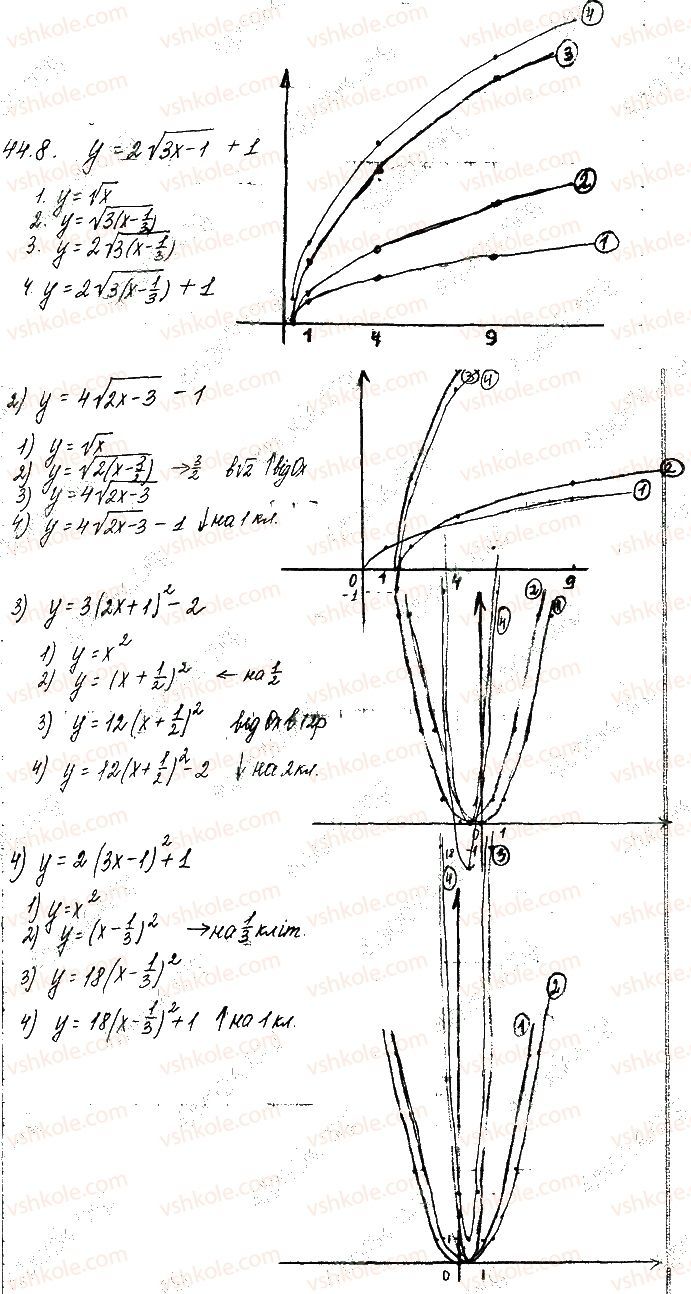 44.8. y = 2√(3x-1) + 1
1. y = √x
2. y = √(3(x-1/3))
3. y = 2√(3(x-1/3))
4. y = 2√(3(x-1/3)) + 1
4
3
2
1
1 4 9
2) y = 4√(2x-3) - 1
1) y = √x
2) y = √(2(x-3/2)) → 3/2 в √2 ↑ від Ox
3) y = 4√(2x-3)
4) y = 4√(2x-3) - 1 ↓ на 1 кл.
3 4
2
1
0 1 4 9
-1
3) y = 3(2x+1)² - 2
1) y = x²
2) y = (x + 1/2)² ← на 1/2
3) y = 12(x + 1/2)² від Ox в 12р
4) y = 12(x + 1/2)² - 2 ↓ на 2 кл.
2
4
0 1
4) y = 2(3x-1)² + 1
1) y = x²
2) y = (x - 1/3)² → на 1/3 кліт.
3) y = 18(x - 1/3)²
4) y = 18(x - 1/3)² + 1 ↑ на 1 кл.
3
4
2
1
0 1
vshkole.com